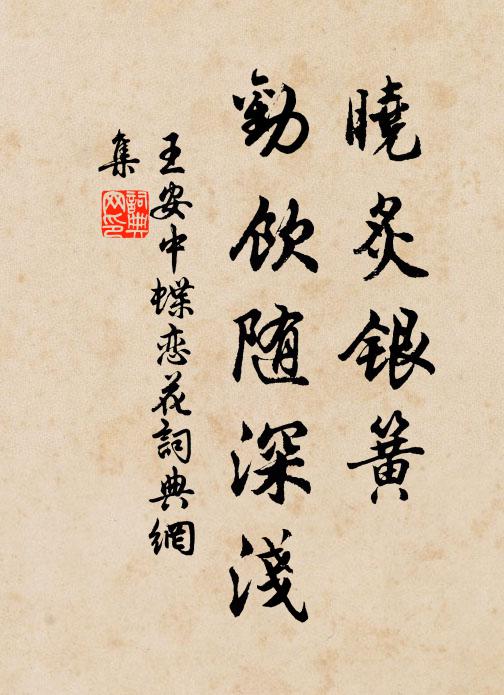 曉炙銀簧
勸飲随深淺
王安中蝶恋花詞典網
集
詞典
网印